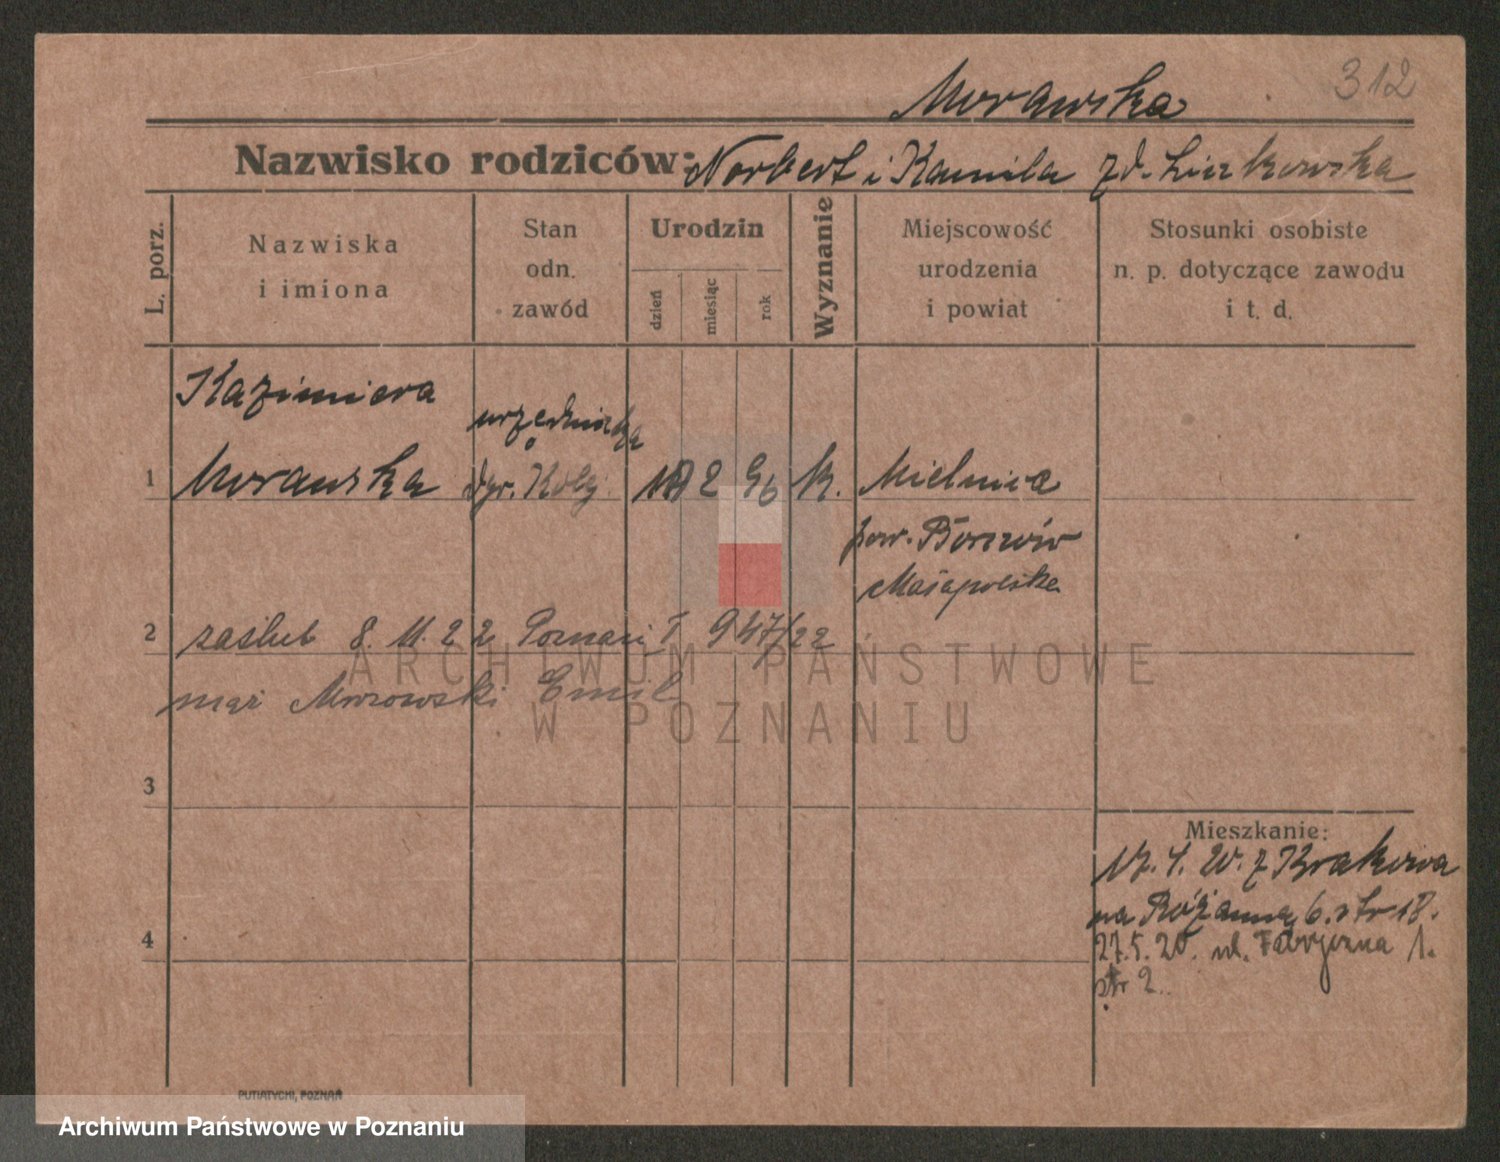 312
Morawska
Nazwisko rodziców: Norbert i Kamila zd. Liszkowska
L. porz.
Nazwiska
i imiona
Stan
odn.
zawód
Urodzin
dzień
miesiąc
rok
Wyznanie
Miejscowość
urodzenia
i powiat
Stosunki osobiste
n. p. dotyczące zawodu
i t. d.
Kazimiera
urzędniczka
1 Morawska dyr. Kolej. 2 96 k. Mielnica
pow. Borszów
Małapolska
2 zaślub 8.11.22 Poznań I 947/22
mąż Morowski Emil
3
4
Mieszkanie:
17. 4. 20. z Krakowa
na Różanną 6. str 18.
27.5.20. ul. Fabryczna 1.
str 2.
PUTIATYCKI, POZNAŃ
ARCHIWUM PAŃSTWOWE
W POZNANIU
Archiwum Państwowe w Poznaniu